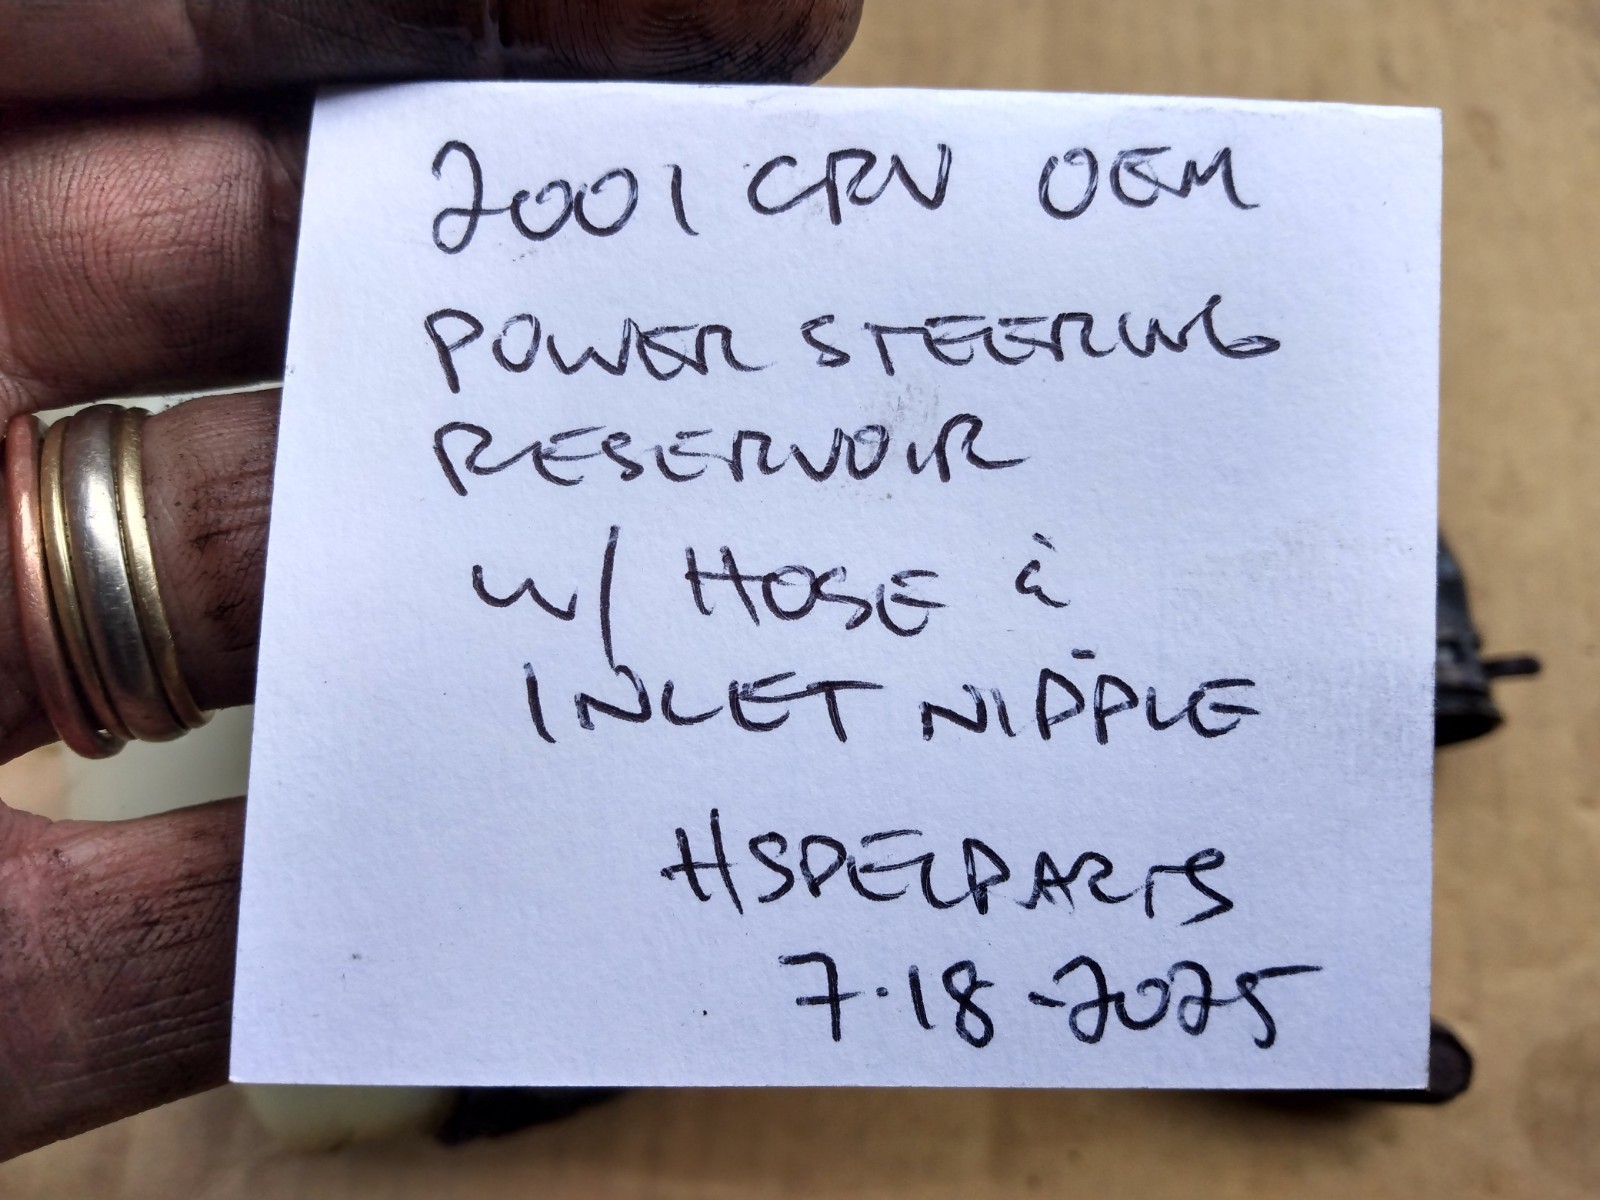 2001 CRV OEM
POWER STEERING
RESERVOIR
W/ HOSE &
INLET NIPPLE
HSPELPARTS
7.18-2025